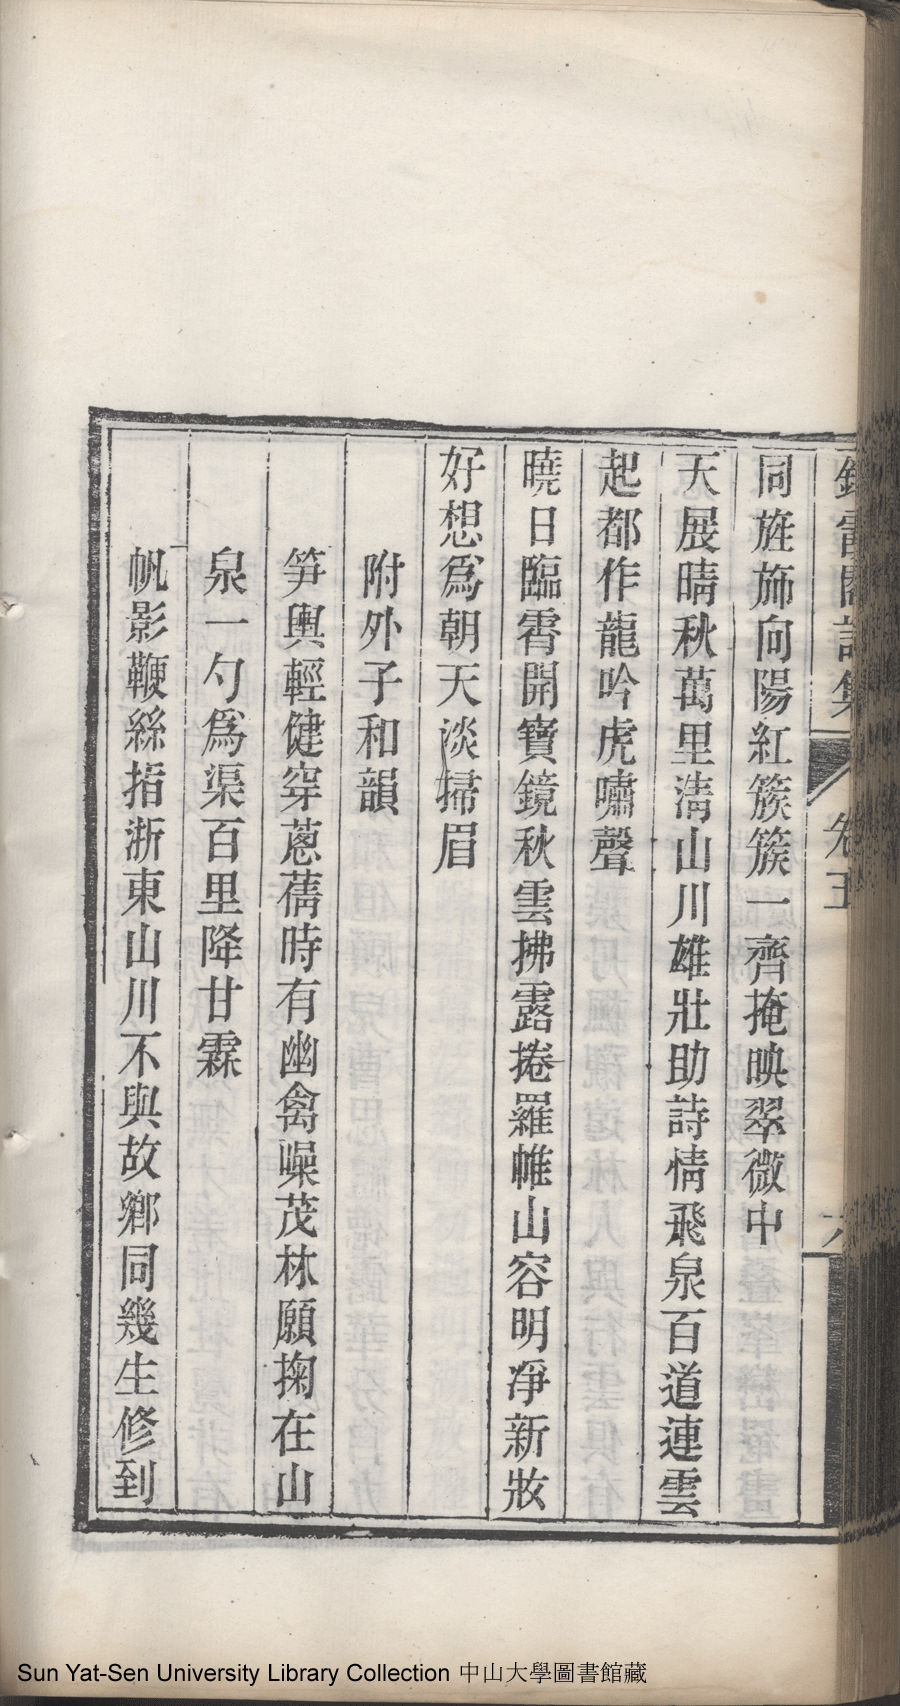 詩集 卷五 六
同旌斾向陽紅簇簇一齊掩映翠微中
天展晴秋萬里淸山川雄壯助詩情飛泉百道連雲
起都作龍吟虎嘯聲
曉日臨霄開寶鏡秋雲拂露捲羅帷山容明淨新妝
好想爲朝天淡掃眉
附外子和韻
笋輿輕健穿蔥蒨時有幽禽噪茂林願掬在山
泉一勺爲渠百里降甘霖
帆影鞭絲指浙東山川不與故鄉同幾生修到
Sun Yat-Sen University Library Collection 中山大學圖書館藏